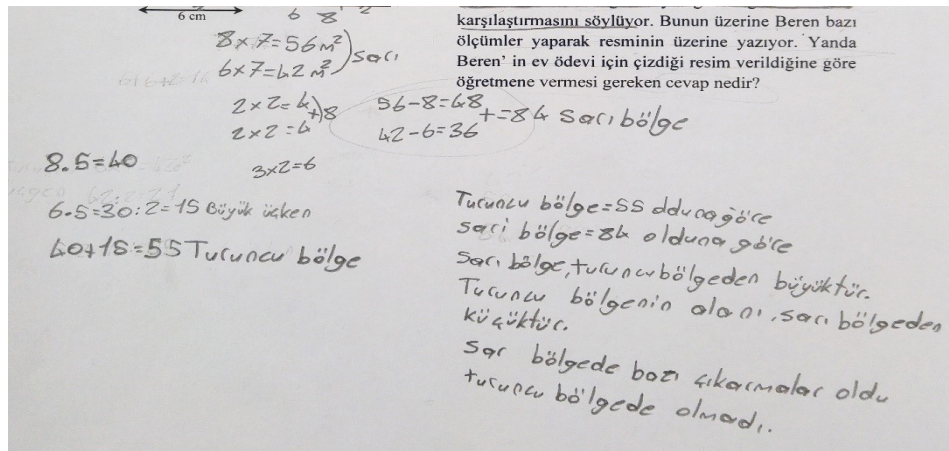 6 cm
6 8 2
karşılaştırmasını söylüyor. Bunun üzerine Beren bazı
ölçümler yaparak resminin üzerine yazıyor. Yanda
Beren' in ev ödevi için çizdiği resim verildiğine göre
öğretmene vermesi gereken cevap nedir?
8x7=56m²
6x7=42m² ) sarı
2x2=4
2x2=4 +)8
3x2=6
56-8=48
42-6=36 + =84 Sarı bölge
8.5=40
6.5=30:2=15 Büyük üçken
40+15=55 Turuncu bölge
Turuncu bölge=55 olduna göre
sari bölge=84 olduna göre
Sarı bölge, turuncu bölgeden büyüktür.
Turuncu bölgenin alanı, sarı bölgeden
küçüktür.
Sar bölgede bazı çıkarmalar oldu
turuncu bölgede olmadı.